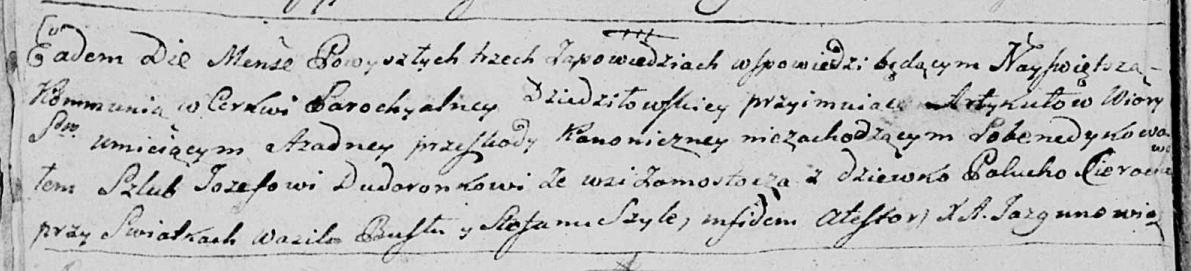 Eadem Die Mense Powyszłych trzech Zapowiedziach wspowiedzi będącym Nayświętszą
Kommunią w Cerkwi Parochyalney Dziedziłowskiey przyimuiącą Artykułów Wiary
Sw. umieiącym Azadney przeszkody Kanoniczney niezachodzącym Pobenedykowa-
łem Szlub Jozefowi Dudoronkowi ze wsi Zamostocza z dziewko Palucho
przy Swiatkach Wasilu y Stefanu Szyle, infidem atestor, X A. Jazgunowicz